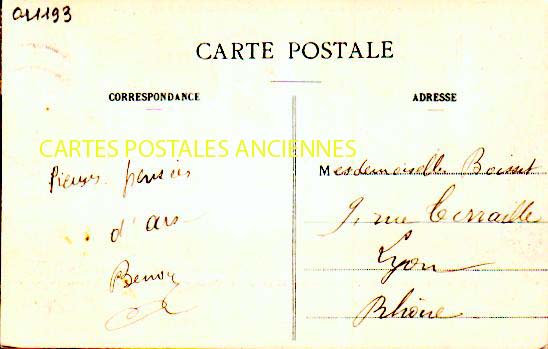 041193
CARTE POSTALE
CORRESPONDANCE
ADRESSE
CARTES POSTALES ANCIENNES
Pieuses pensées
d'Ars
Mesdemoiselles Boisset
9, rue Terraille
Lyon
Rhône